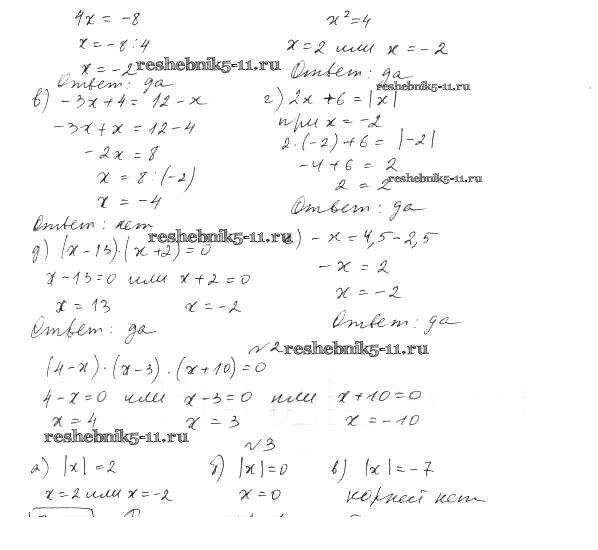 4x = -8
x = -8 : 4
x = -2
Ответ: да
x² = 4
x = 2 или x = -2
Ответ: да
reshebnik5-11.ru
reshebnik5-11.ru
в) -3x + 4 = 12 - x
-3x + x = 12 - 4
-2x = 8
x = 8 : (-2)
x = -4
Ответ: нет
г) 2x + 6 = |x|
при x = -2
2·(-2) + 6 = |-2|
-4 + 6 = 2
2 = 2
reshebnik5-11.ru
Ответ: да
reshebnik5-11.ru
д) (x - 13)·(x + 2) = 0
x - 13 = 0 или x + 2 = 0
x = 13 x = -2
Ответ: да
) - x = 4,5 - 2,5
-x = 2
x = -2
Ответ: да
№2
reshebnik5-11.ru
(4 - x)·(x - 3)·(x + 10) = 0
4 - x = 0 или x - 3 = 0 или x + 10 = 0
x = 4 x = 3 x = -10
reshebnik5-11.ru
№3
а) |x| = 2 б) |x| = 0 в) |x| = -7
x = 2 или x = -2 x = 0 корней нет